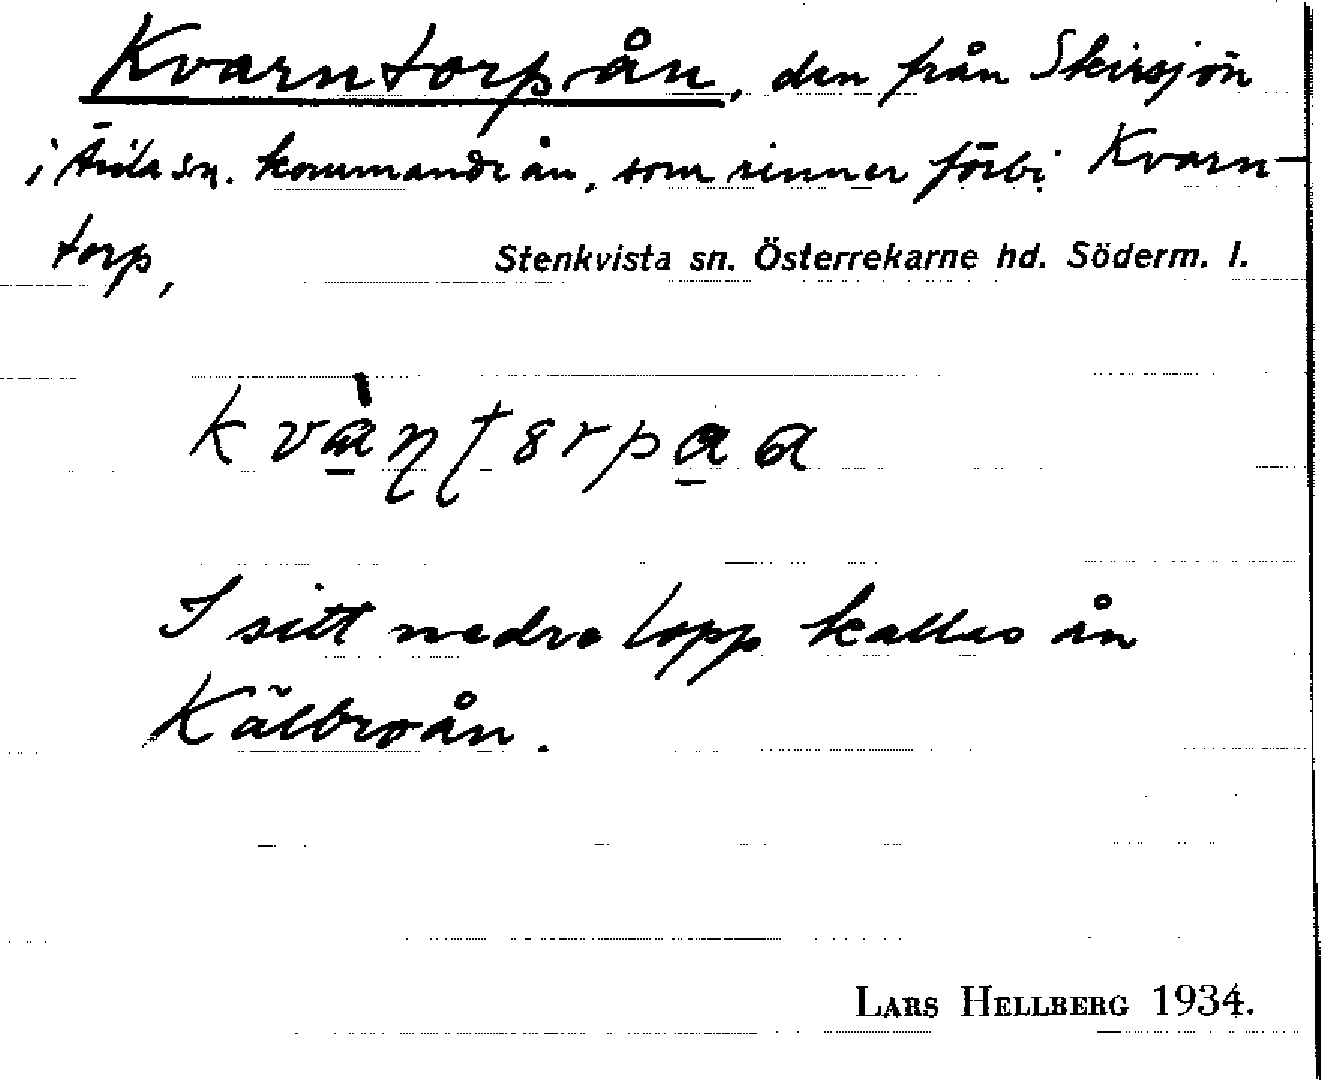 Kvarntorpån, den från Skirsjön
i Ärila sn. kommande ån, som rinner förbi Kvarn-
torp,
Stenkvista sn. Österrekarne hd. Söderm. l.
I sitt nedre lopp kallas ån
Kälbroån.
LARS HELLBERG 1934.